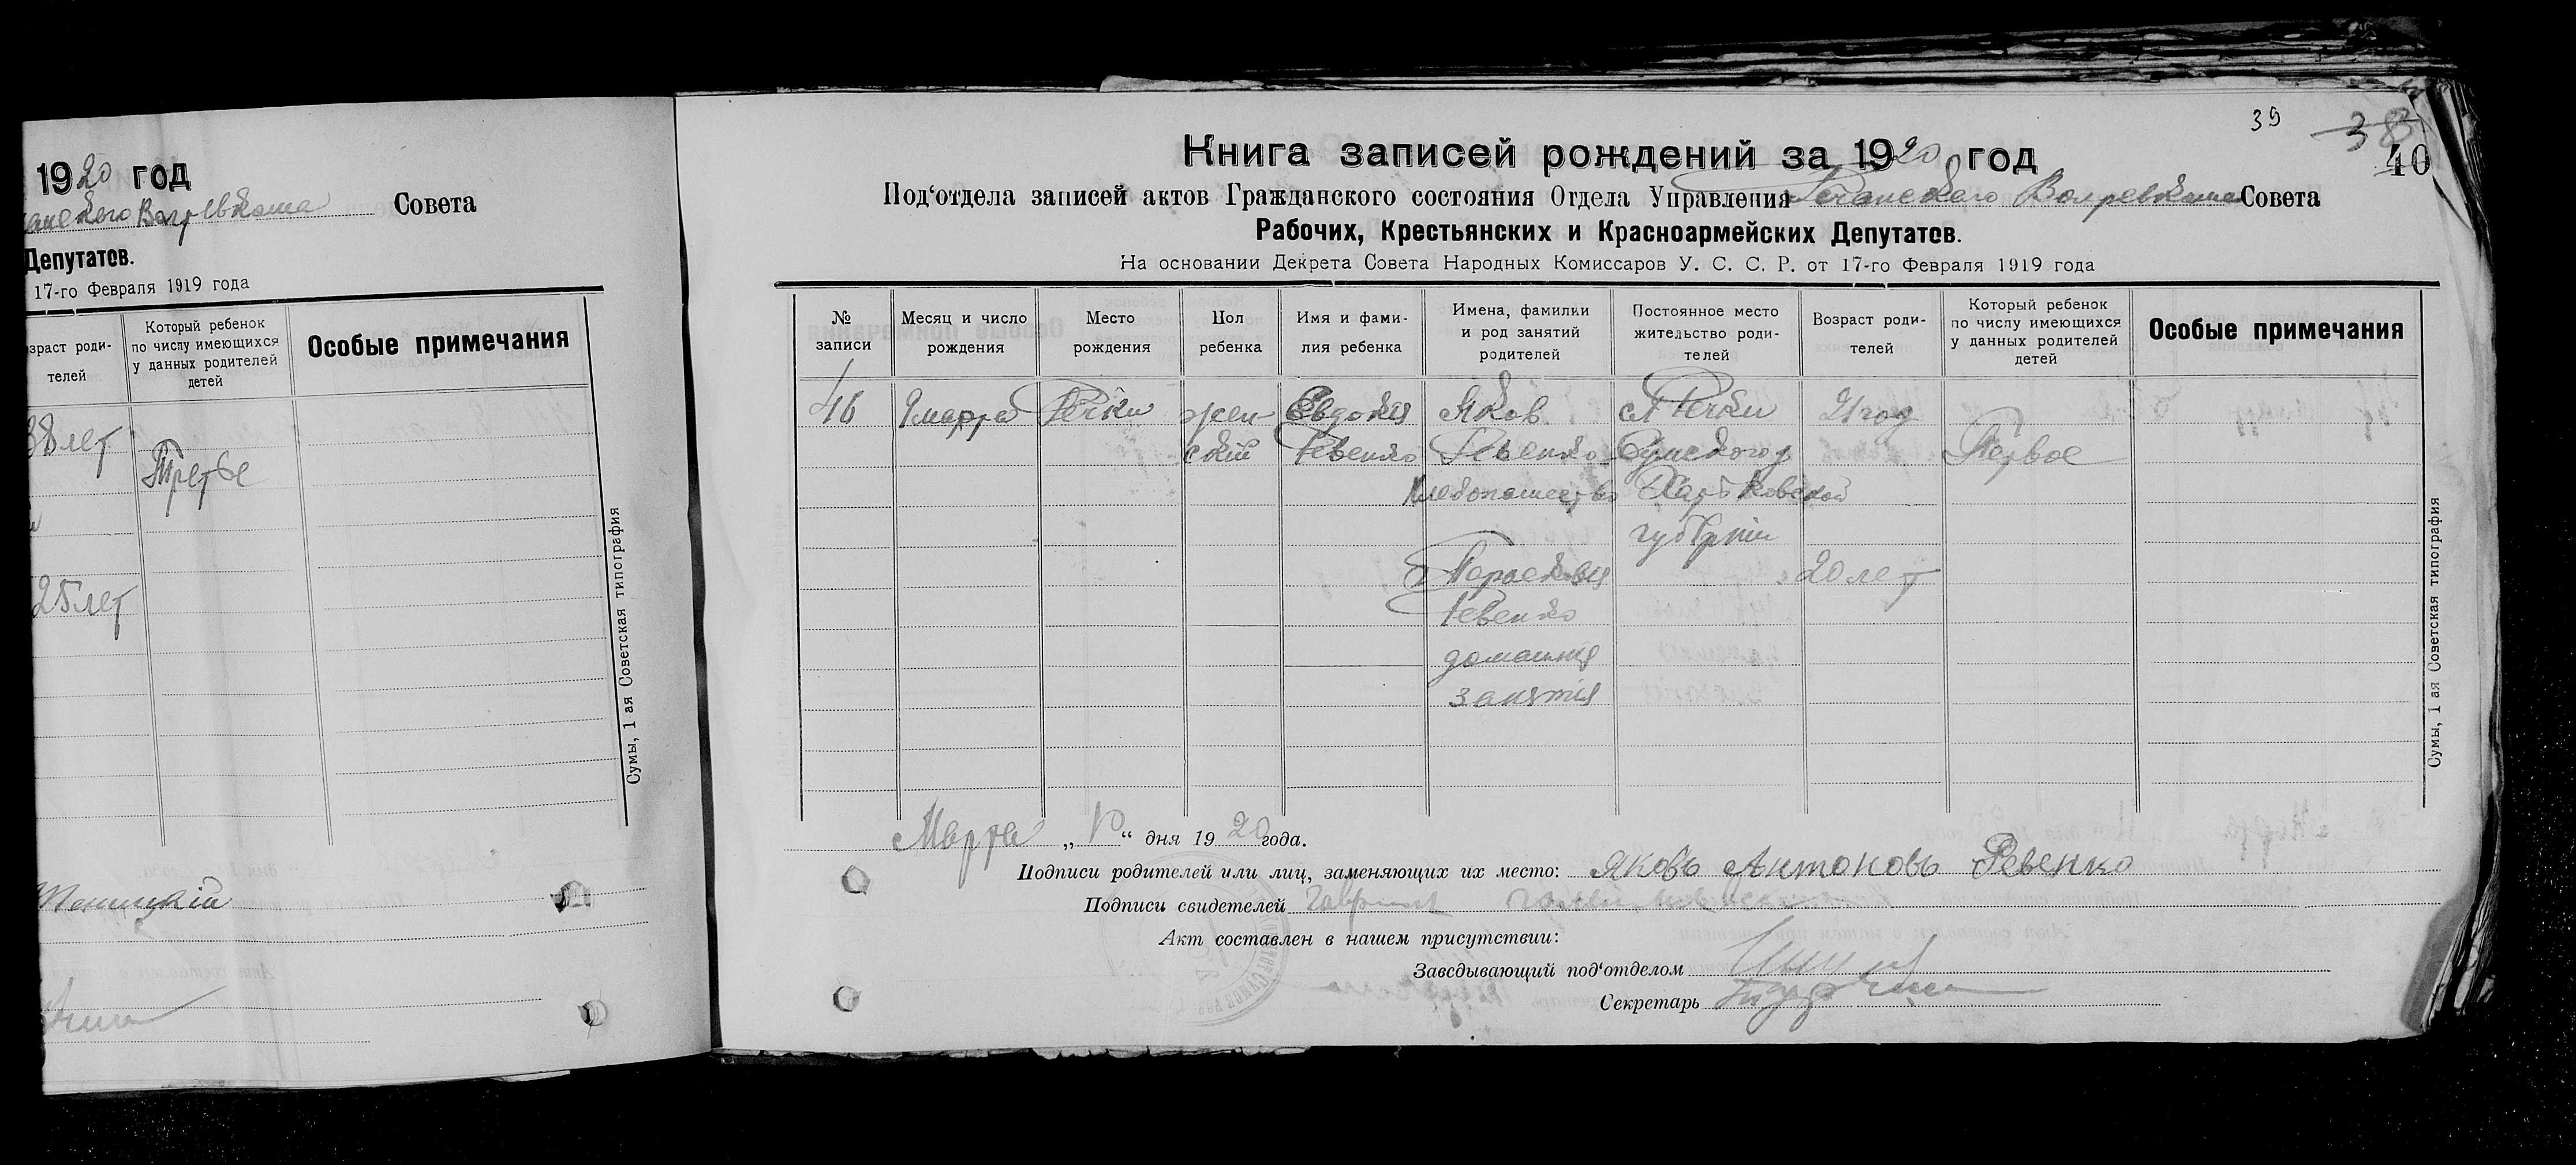 1920 год
Совета
Депутатов.
17-го Февраля 1919 года
зраст роди-
телей
Который ребенок
по числу имеющихся
у данных родителей
детей
Особые примечания
38 лет
Третье
25 лет
Сумы, 1 ая Советская типография
39
38
40
Книга записей рождений за 1920 год
Под‘отдела записей актов Гражданского состояния Отдела Управления Речанского Волревкома Совета
Рабочих, Крестьянских и Красноармейских Депутатов.
На основании Декрета Совета Народных Комиссаров У. С. С. Р. от 17-го Февраля 1919 года
№
записи
Месяц и число
рождения
Место
рождения
Пол
ребенка
Имя и фами-
лия ребенка
Имена, фамилии
и род занятий
родителей
Постоянное место
жительство роди-
телей
Возраст роди-
телей
Который ребенок
по числу имеющихся
у данных родителей
детей
Особые примечания
16
марта
Речки
жен
ский
Евдокия
Ревенко
Яков
Ревенко
хлебопашество
с Речки
Сумского у
Харьковской
губернии
21 год
Первое
Параскевия
Ревенко
домашния
занятия
20 лет
Сумы, 1 ая Советская типография
Марта „10“ дня 1920 года.
Подписи родителей или лиц, заменяющих их место: Яковъ Антоновъ Ревенко
Подписи свидетелей
Акт составлен в нашем присутствии:
Заведывающий под‘отделом
Секретарь